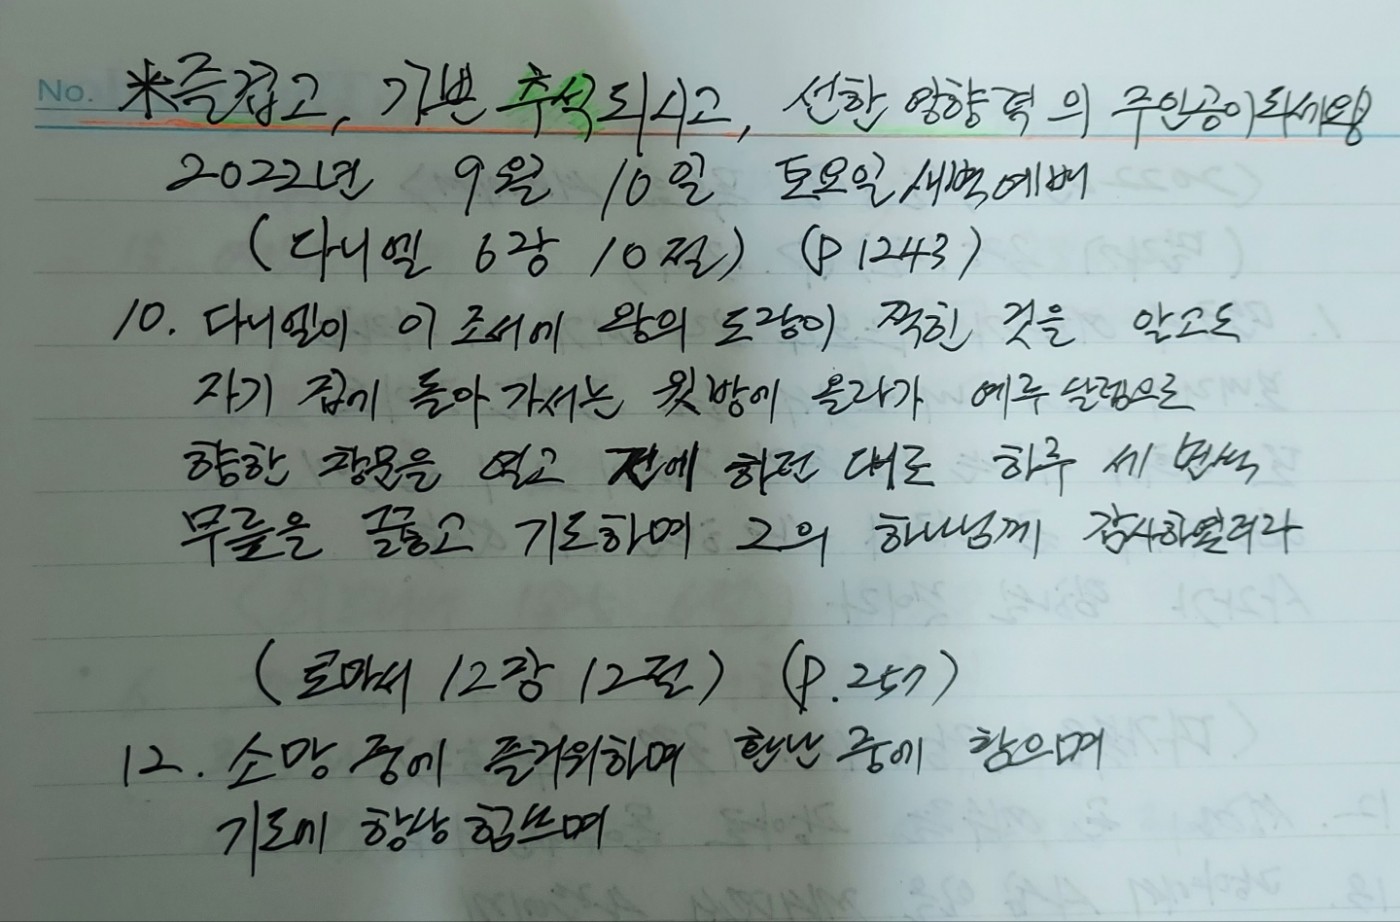 No. ※즐겁고, 기쁜 추석되시고, 선한 영향력의 주인공이되세요!
2022년 9월 10일 토요일새벽예배
(다니엘 6장 10절) (P1243)
10. 다니엘이 이 조서에 왕의 도장이 찍힌 것을 알고도
자기 집에 돌아 가서는 윗방에 올라가 예루살렘으로
향한 창문을 열고 전에 하던 대로 하루 세 번씩
무릎을 꿇고 기도하며 그의 하나님께 감사하였더라
(로마서 12장 12절) (P.257)
12. 소망 중에 즐거워하며 환난 중에 참으며
기도에 항상 힘쓰며